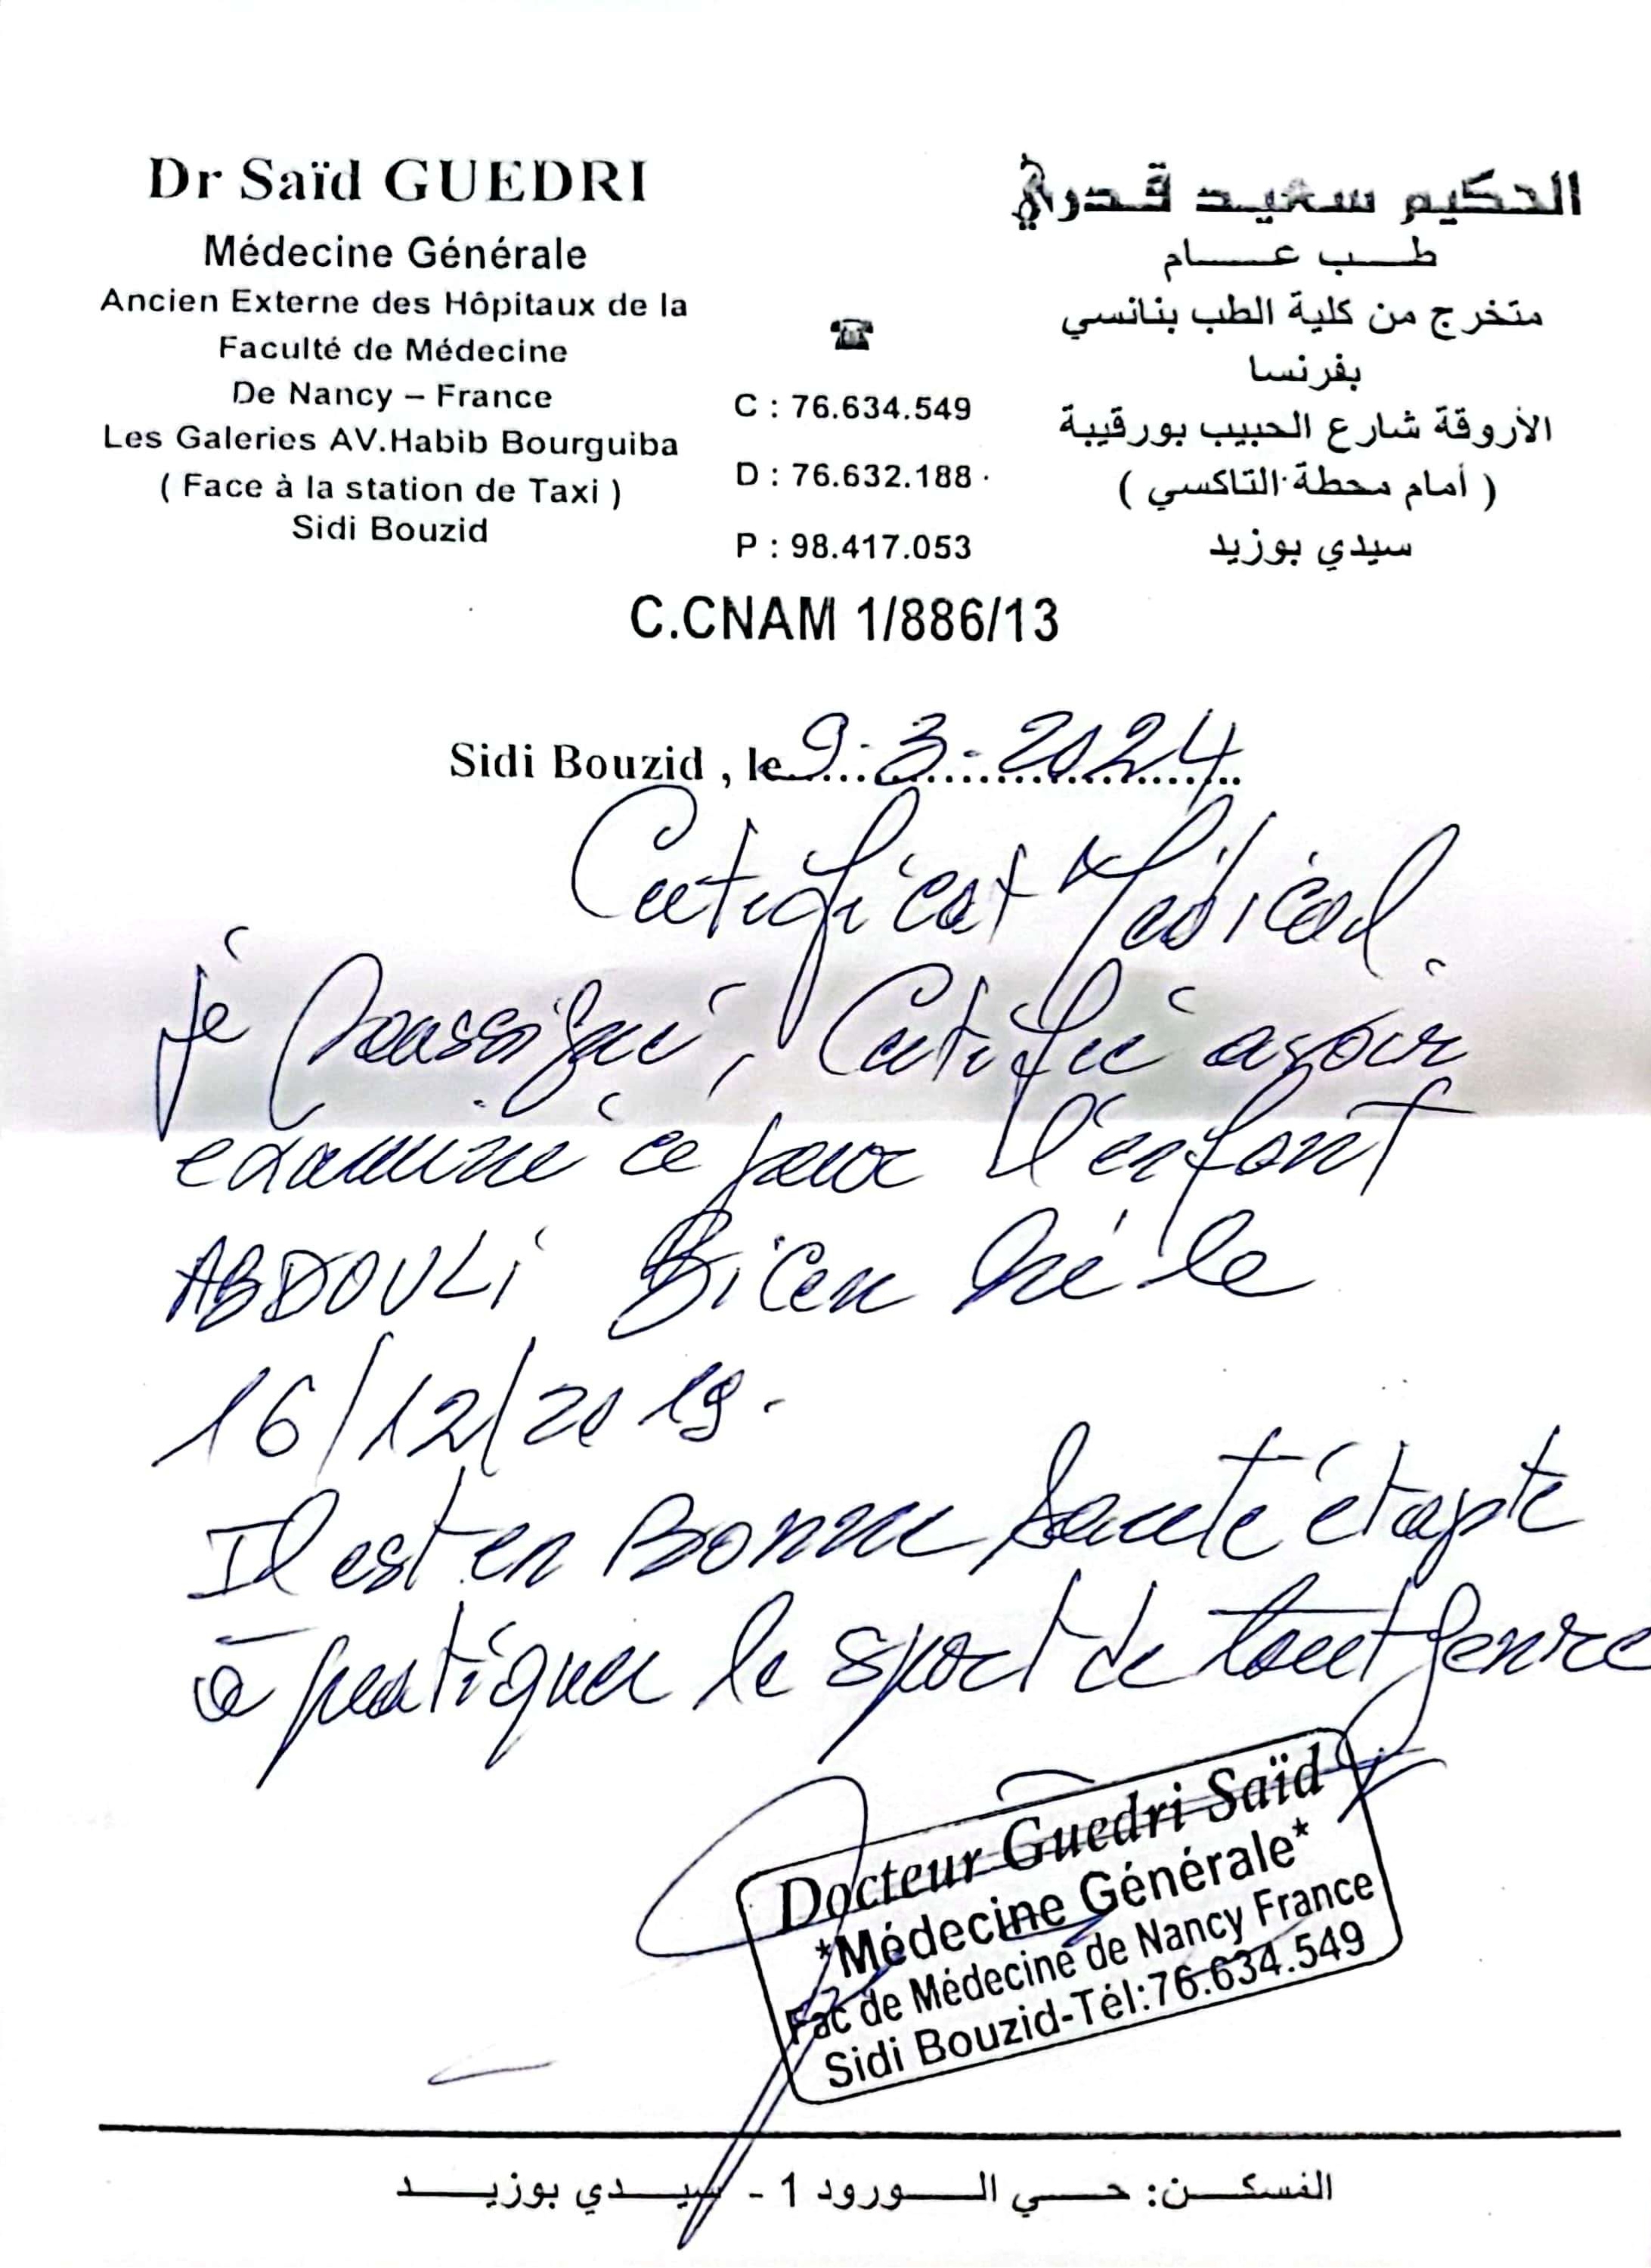 Dr Saïd GUEDRI
Médecine Générale
Ancien Externe des Hôpitaux de la
Faculté de Médecine
De Nancy – France
Les Galeries AV.Habib Bourguiba
( Face à la station de Taxi )
Sidi Bouzid
☎
C : 76.634.549
D : 76.632.188
P : 98.417.053
الحكيم سعيد قدري
طب عام
متخرج من كلية الطب بنانسي
بفرنسا
الأروقة شارع الحبيب بورقيبة
( أمام محطة التاكسي )
سيدي بوزيد
C.CNAM 1/886/13
Sidi Bouzid , le 9-3-2024
Certificat Médical
je soussigné, Certifie avoir
examiné ce jour l'enfant
ABDOULi né le
16/12/2019.
Il est en Bonne Santé et apte
à pratiquer le sport de tout genre
Docteur Guedri Saïd
*Médecine Générale*
Fac de Médecine de Nancy France
Sidi Bouzid-Tél:76.634.549
الفسكن: حي الورود 1 - سيدي بوزيد